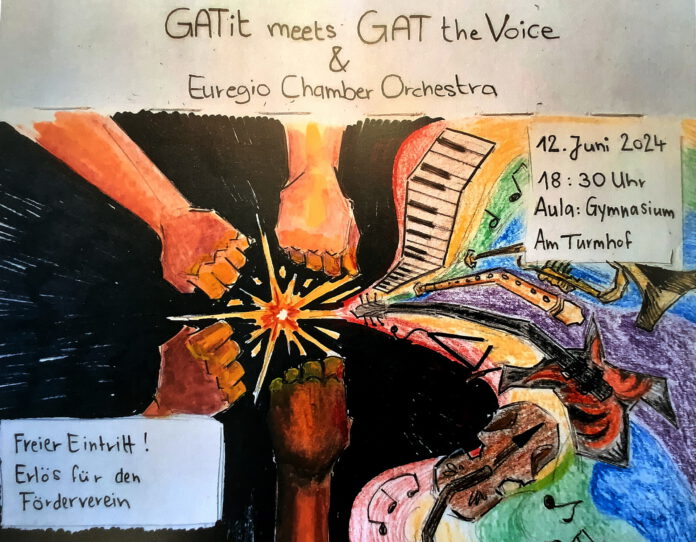 GATit meets GAT the Voice
&
Euregio Chamber Orchestra
12. Juni 2024
18:30 Uhr
Aula: Gymnasium
Am Turmhof
Freier Eintritt!
Erlös für den
Förderverein